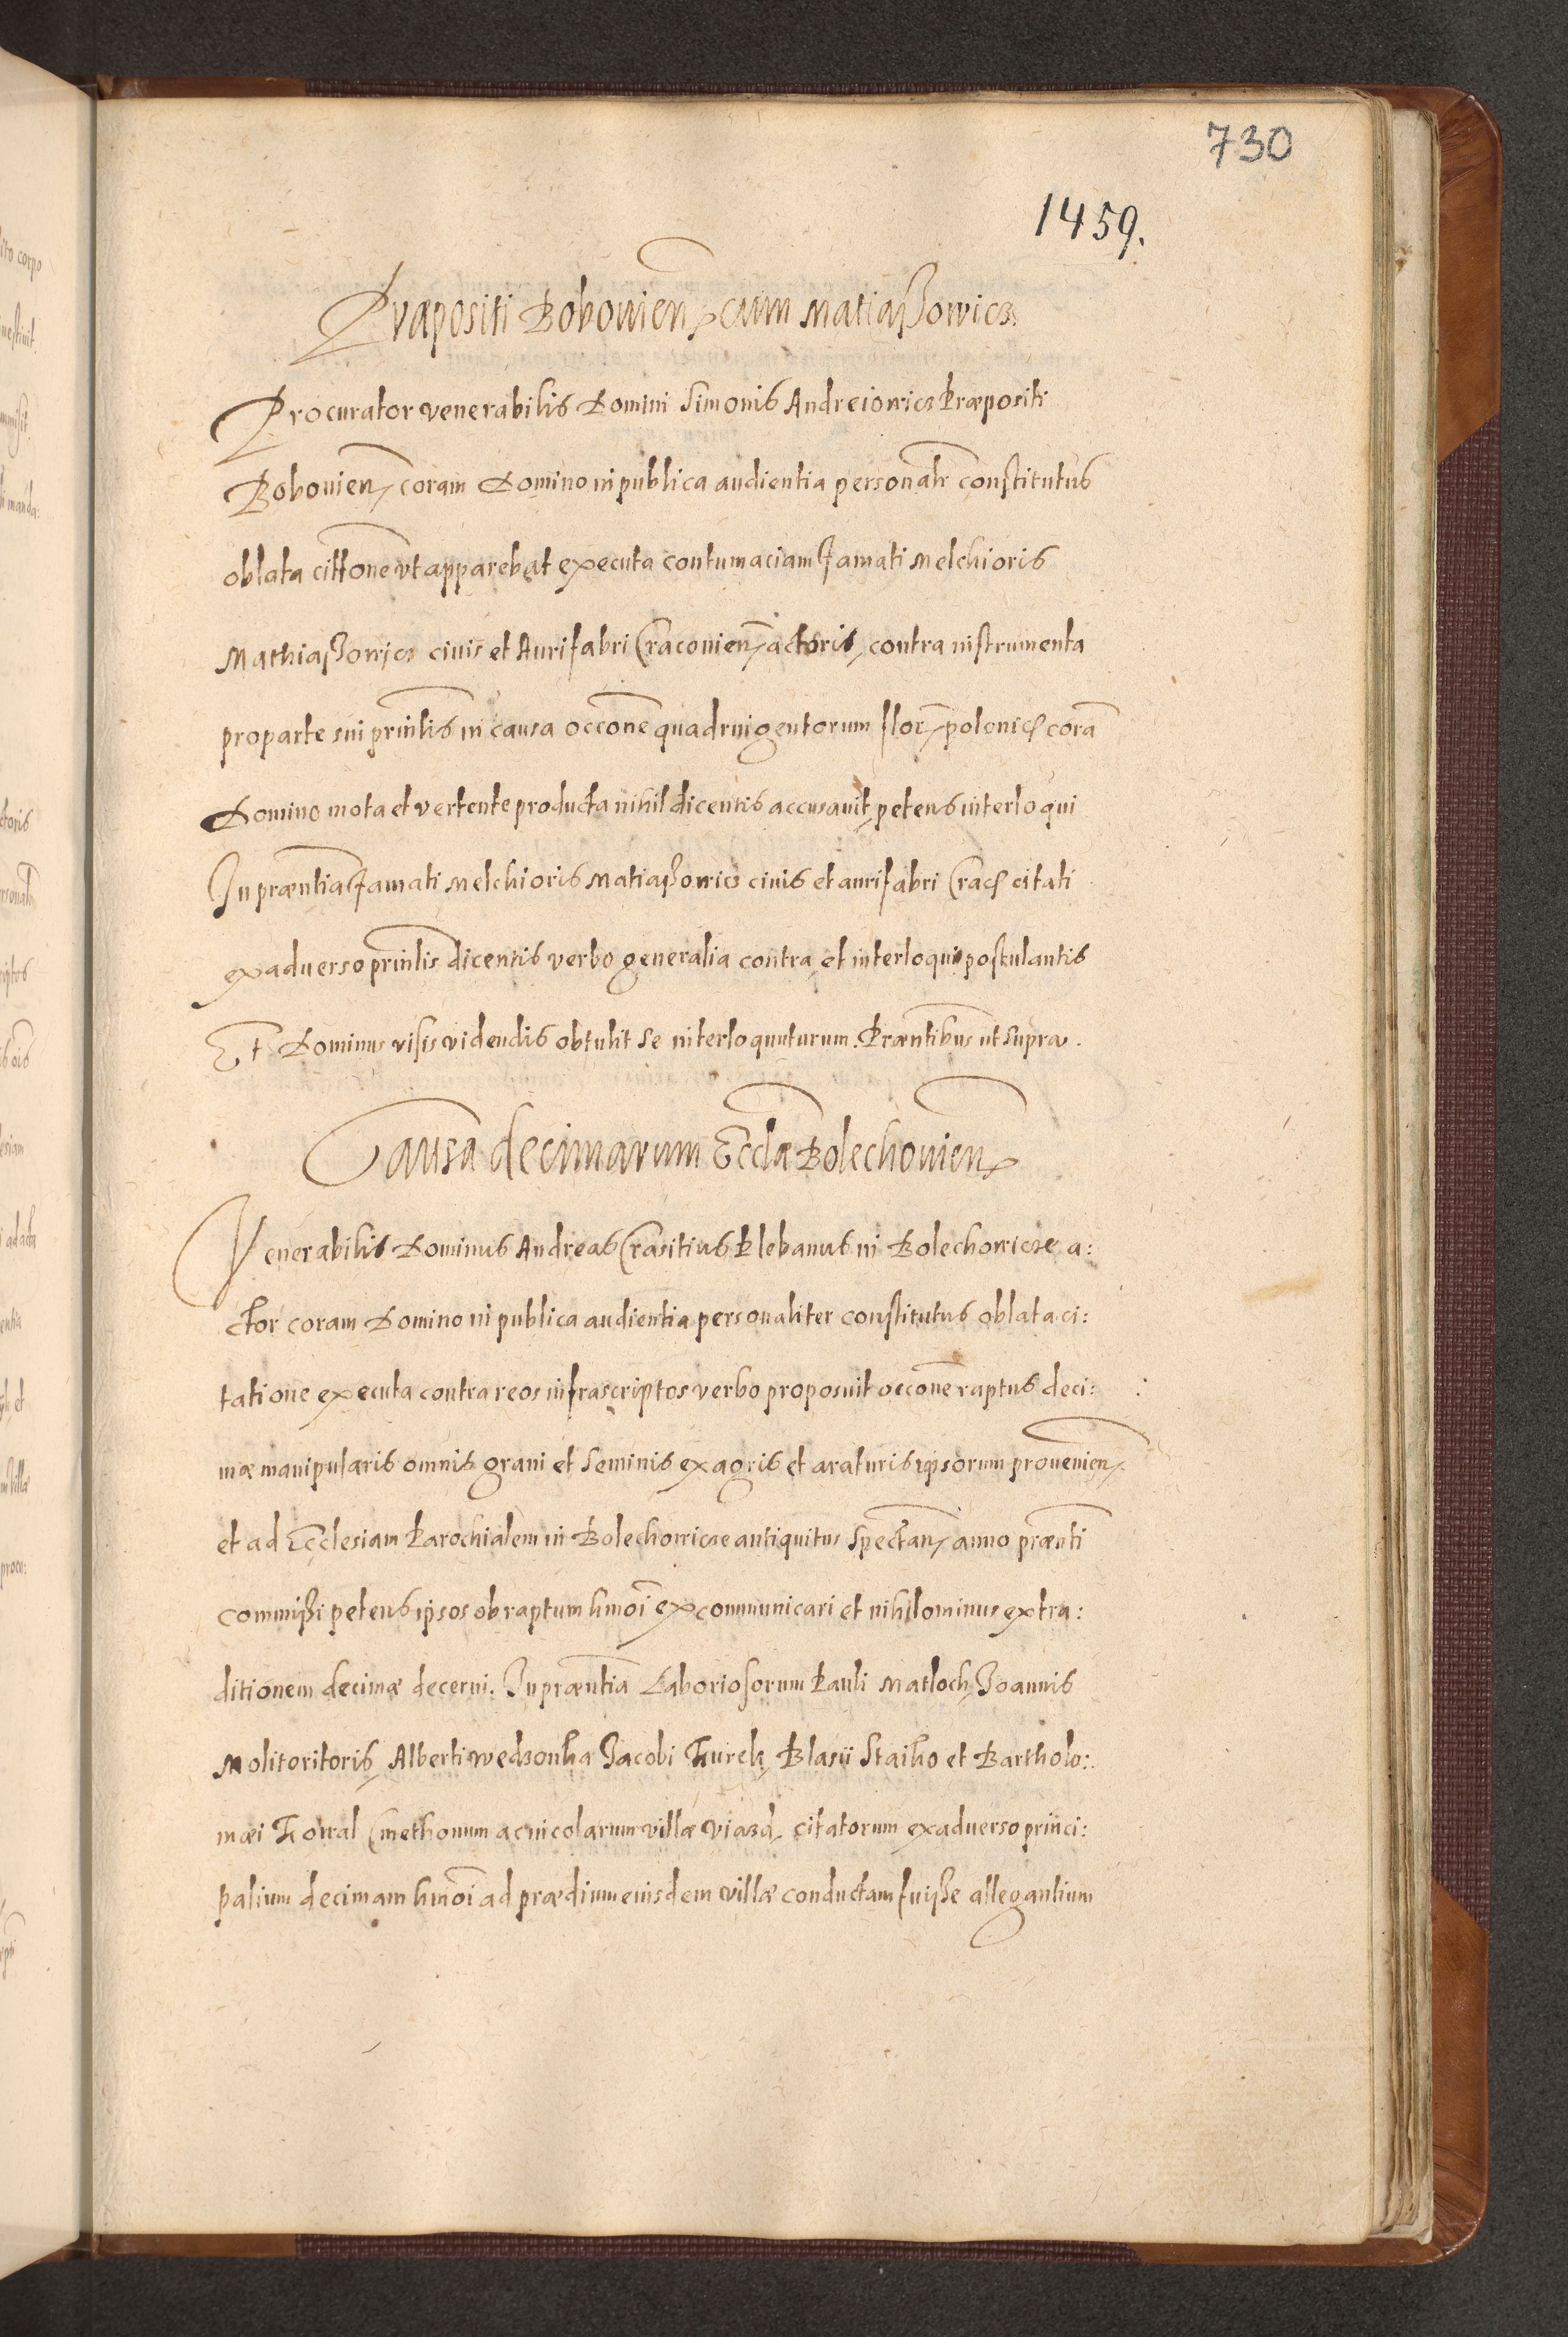 730
1459.
Præpositi Bobowien cum Matiaßowicz
Procurator venerabilis Domini Simonis Andreiowicz Præpositi
Bobouien, coram Domino in publica audientia personalr constitutus
oblata cittone vt apparebat executa contumaciam famati Melchioris
Mathiaßowicz ciuis et Aurifabri Cracouien, actoris, contra instrumenta
pro parte sui prinlis in causa occone quadringentorum flor, polonic corā
Domino mota et vertente producta nihil dicentis accusauit, petens interloqui
In præntia famati Melchioris Matiaßowicz ciuis et aurifabri Crac citati
ex aduerso prinlis dicentis verbo generalia contra, et interloqui postulantis
Et Dominus visis videndis obtulit se interloquuturum. Præntibus ut supra.
Causa decimarum Eccłæ Bolechouien
Venerabilis Dominus Andreas Crasitius Plebanus in Bolechowicze a:
ctor coram Domino in publica audientia personaliter constitutus oblata ci:
tatione executa contra reos infrascriptos verbo proposuit occone raptus deci:
mæ manipularis omnis grani et seminis ex agris et araturis ipsorum prouenien,
et ad Ecclesiam Parochialem in Bolechowicze antiquitus spectan, anno prænti
commißi petens ipsos ob raptum hmoi excommunicari et nihilominus extra:
ditionem decimæ decerni. In præntia Laboriosorum Pauli Matloch, Joannis
Molitoritoris, Alberti Wedzonka Jacobi Kurek, Blasii Staiko et Bartholo:
mæi Kowal Cmethonum ac incolarum villæ Viazd, citatorum ex aduerso princi:
palium decimam hmoi ad prædium eiusdem villæ conductam fuiße allegantium